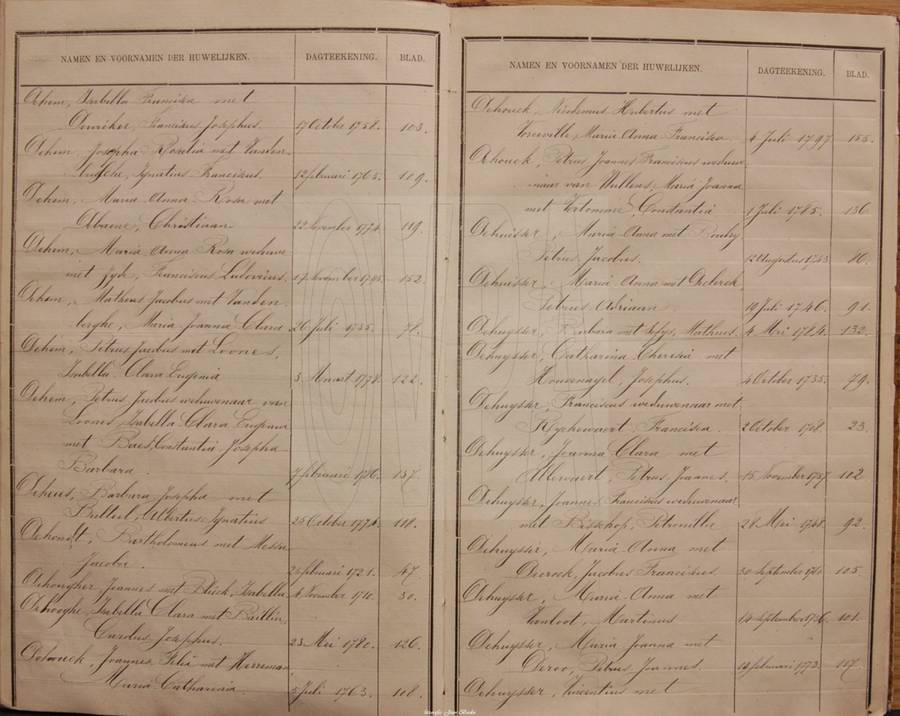 NAMEN EN VOORNAMEN DER HUWELIJKEN. DAGTEEKENING. BLAD.
Dehem, Isabella Francisca met
Franciscus Josephus. 17 October 1758. 103.
Dehem, Josepha Rosalia met Vanden-
Ignatius Franciscus. 12 februari 1765. 109.
Dehem, Maria Anna Rosa met
Christiaan 22 November 1774. 119.
Dehem, Maria Anna Rosa weduwe
met Franciscus Ludovicus. 17 November 1795. 152.
Dehem, Matheus Jacobus met Vanden-
berghe, Maria Joanna Clara 26 Juli 1735. 78.
Dehem, Petrus Jacobus met Loones,
Isabella Clara Eugenia 3 Maart 1778. 122.
Dehem, Petrus Jacobus weduwenaar van
Loones Isabella Clara Eugenia
met Baes, Constantia Josepha
Barbara. 7 februari 1786. 137.
Barbara Josepha met
Albertus Ignatius 25 October 1774. 118.
Dehondt, Bartholomeus met
Jacoba. februari 1721. 47
Joannes met Isabella 4 November 1710. 30.
Dehooghe, Isabella Clara met
Carolus Josephus. 23 Mei 1780. 126.
Dehouck, Joannes met Herreman
Maria Catharina. 5 Juli 1763. 108.
NAMEN EN VOORNAMEN DER HUWELIJKEN. DAGTEEKENING. BLAD.
Dehouck, Hubertus met
Maria Anna Francisca. 4 Juli 1797 155.
Dehouck, Petrus Joannes Franciscus weduwe-
naar van Maria Joanna
met Constantia 1 Juli 1785. 136
Maria Anna met
Petrus Jacobus. 12 Augustus 1743 86.
Maria Anna met
Petrus Adriaan 19 Juli 1746. 91.
Dehuysser, Barbara met Matheus. 4 Mei 1784. 132.
Dehuysser, Catharina Theresia met
Josephus. 4 October 1735. 79.
Dehuysser, Franciscus weduwenaar met
Francisca. 2 October 1708. 23.
Dehuysser, Joanna Clara met
Petrus Joannes. 15 November 1757 102
Dehuysser, Joannes Franciscus weduwenaar
met Bisschop, Petronilla 28 Mei 1748. 92.
Dehuysser, Maria Anna met
Jacobus Franciscus. 30 September 1760 105.
Dehuysser, Maria Anna met
Vanloot, Martinus 14 September 1756. 101.
Dehuysser, Maria Joanna met
Deroo, Petrus Joannes. februari 1773. 117.
Dehuysser, Vincentius met